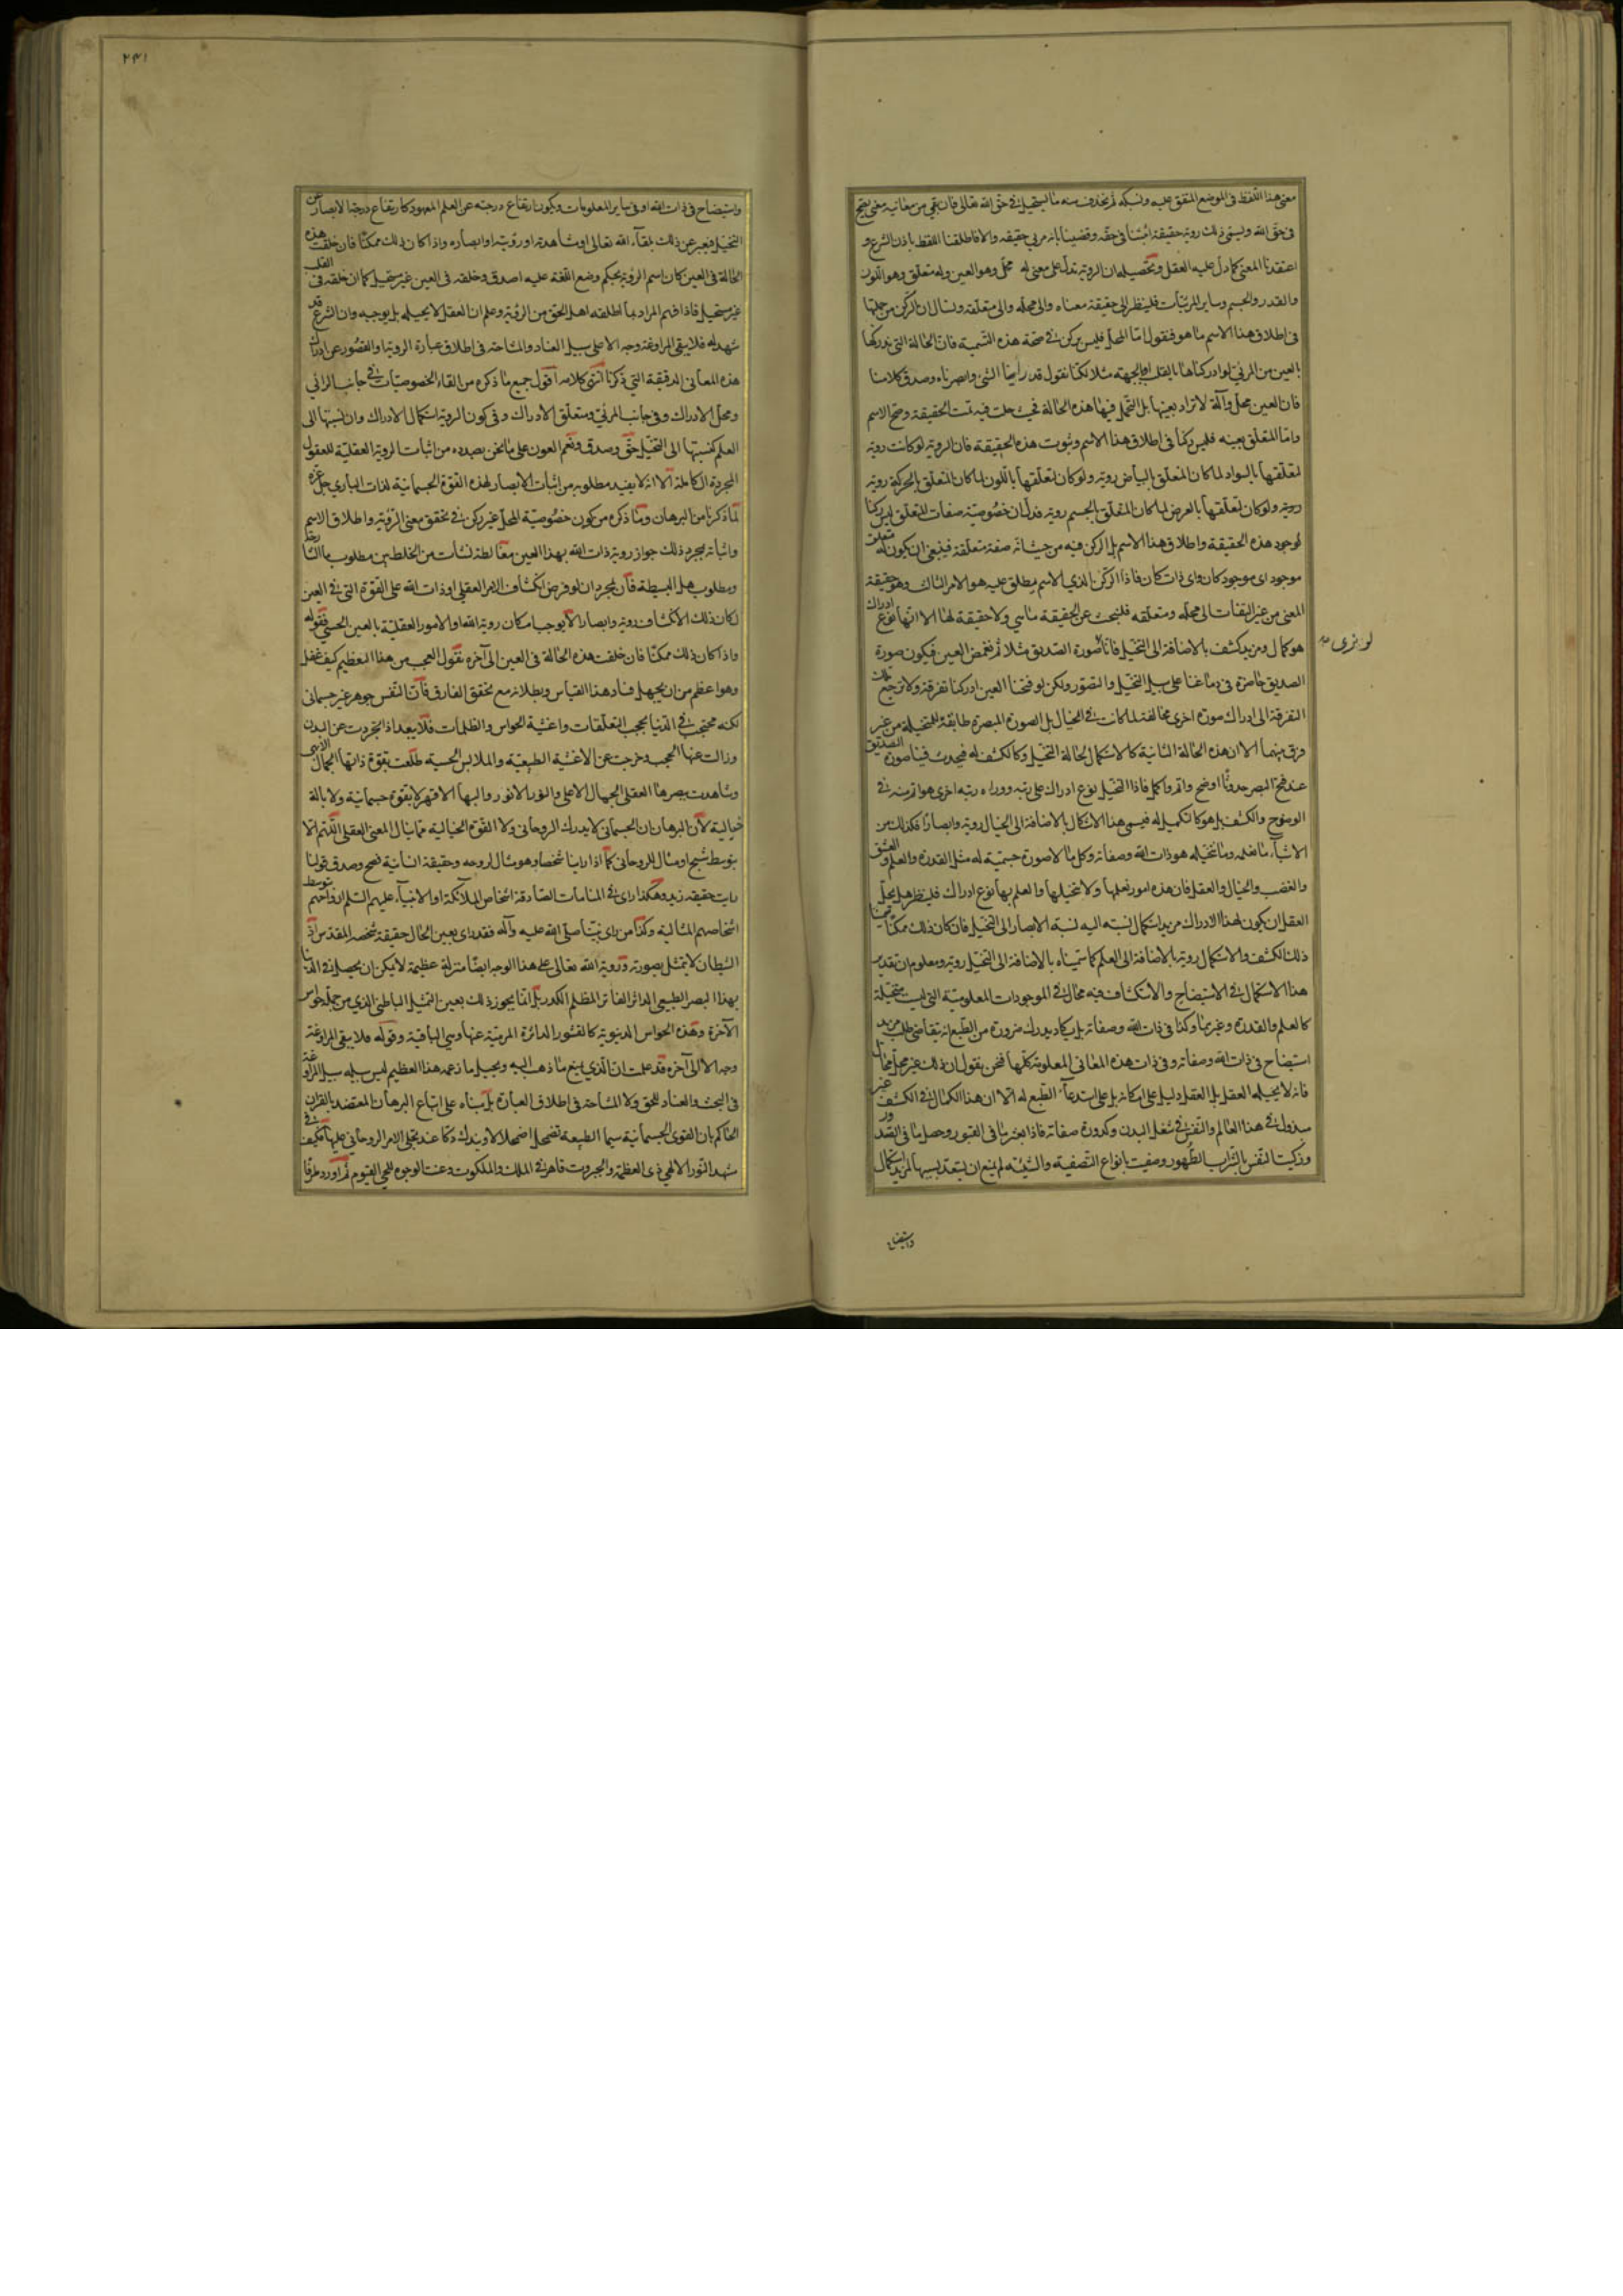 معنى هذا اللفظ فى الموضع المتفق عليه ونسبكه ثم نحذف منه ما يستحيل في حق الله تعالى فان بقى من معانيه معنى يصح
فى حق الله وليسمى ذلك روية حقيقة اثبتناه فى حقه وقضينا بانه مرئي حقيقه والا فاطلقنا اللفظ باذن الشرع و
اعتقدنا المعنى كما دل عليه العقل وتحصيله ان الروية تدل على معنى له محل وهو العين وله متعلق وهو اللون
والقدر والجسم وساير المرئيات فلينظر الى حقيقة معناه والى محله والى متعلقه ونسال ان الركن من جملتها
فى اطلاق هذا الاسم ما هو فنقول اما المحل فليس بركن في صحة هذه التسمية فان الحالة التي ندركها
بالعين من المرئي لو ادركناها بالقلب او بالجبهة مثلا لكنا نقول قد راينا الشئ وابصرناه وصدق كلامنا
فان العين محل وآلة لا تراد بعينها بل لتحل فيها هذه الحالة فحيث حلت فيه تمت الحقيقة وصح الاسم
واما المتعلق بعينه فليس ركنا فى اطلاق هذا الاسم وثبوت هذه الحقيقة فان الروية لو كانت روية
لتعلقها بالسواد لما كان المتعلق بالبياض روية ولو كان لتعلقها باللون لما كان المتعلق بالحركة روية
روية ولو كان لتعلقها بالعرض لما كان المتعلق بالجسم روية فدل ان خصوصية صفات المتعلق ليس ركنا
لوجود هذه الحقيقة واطلاق هذا الاسم بل الركن فيه من حيث انه صفة متعلقة فينبغى ان يكون له متعلق
موجود اى موجود كان واى ذات كان فاذا الركن الذي الاسم مطلق عليه هو الامر الثالث وهو حقيقة
المعنى من غير التفات الى محله ومتعلقه فلنبحث عن الحقيقة ما هي ولا حقيقة لها الا انها نوع ادراك
هو كمال ومزيد كشف بالاضافة الى التخيل فانا صورة الصديق مثلا ثم نغمض العين فيكون صورة
لو نرى
الصديق حاضرة فى دماغنا على سبيل التخيل والتصور ولكن لو فتحنا العين ادركنا تفرقة ولا ترجع تلك
التفرقة الى ادراك صورة اخرى مخالفة لما كانت في الخيال بل الصورة المبصرة مطابقة للمتخيلة من غير
فرق بينهما الا ان هذه الحالة الثانية كالاستكمال لحالة التخيل وكالكشف له فيحدث فينا صورة الصديق
عند فتح البصر حدوثا اوضح واتم واكمل فاذا التخيل نوع ادراك على رتبة ووراءه رتبة اخرى هو اتم منه في
الوضوح والكشف بل هو كالتكميل له فيسمى هذا الاستكمال بالاضافة الى الخيال روية وابصارا فكذلك من
الاشياء ما نعلمه وما نتخيله هو ذات الله وصفاته وكل ما لا صورة جسمية له مثل القدرة والعلم والعشق
والغضب والخيال والعقل فان هذه امور نعلمها ولا نتخيلها والعلم بها نوع ادراك فلينظر هل يحيل
العقل ان يكون لهذا الادراك مزيد استكمال نسبته اليه نسبة الابصار الى التخيل فان كان ذلك ممكنا
ذلك الكشف والاستكمال روية بالاضافة الى العلم كما سميناه بالاضافة الى التخيل روية ومعلوم ان تقدير
هذا الاستكمال في الاستيضاح والانكشاف فيه محال في الموجودات المعلومة التي ليست بمتخيلة
كالعلم والقدرة وغيرهما وكذا فى ذات الله وصفاته بل يكاد يدرك ضرورة من الطبع انه يتقاضى طلب مزيد
استيضاح فى ذات الله وصفاته وفى ذات هذه المعانى المعلومة كلها فنحن نقول ان ذلك غير محال
فانه لا يحيله العقل بل العقل دليل على امكانه بل على استدعاء الطبع له الا ان هذا الكمال في الكشف غير
مبذول في هذا العالم والنفس في شغل البدن وكدورة صفاته فاذا بعثر ما فى القبور وحصل ما فى الصدور
وزكيت النفس بالشراب الطهور وصفيت بانواع التصفية والتنقية لم يمنع ان يستعد بسببها لمزيد استكمال
واستيضاح
٢٣١
واستيضاح فى ذات الله او فى ساير المعلومات ويكون ارتفاع درجته عن العلم المعهود كارتفاع درجة الابصار عن
التخيل فيعبر عن ذلك بلقاء الله تعالى او مشاهدته او رؤيته او ابصاره واذا كان ذلك ممكنا فان خلقت هذه
الحالة فى العين كان اسم الرؤية بحكم وضع اللغة عليه اصدق وخلقه فى العين غير مستحيل كما ان خلقه فى القلب
غير مستحيل فاذا فهم المراد بما اطلقه اهل الحق من الرؤية وعلم ان العقل لا يحيله بل يوجبه وان الشرع قد
شهد له فلا يبقى للمراوغة وجه الا على سبيل العناد والمشاحة فى اطلاق عبارة الروية او القصور عن ادراك
هذه المعانى الدقيقة التي ذكرنا انتهى كلامه اقول جميع ما ذكره من القاء الخصوصيات في جانب الرائي
ومحل الادراك وفى جانب المرئى ومتعلق الادراك وفى كون الروية استكمال الادراك وان نسبتها الى
العلم كنسبتها الى التخيل حق وصدق ونعم العون على ما نحن بصدده من اثبات الروية العقلية للعقول
المجردة الكاملة الا انه لا يفيد مطلوبه من اثبات الابصار لهذه القوة الجسمانية لذات الباري جل عزه
لما ذكرنا من البرهان وما ذكره من كون خصوصية المحل غير ركن في تحقق معنى الرؤية واطلاق الاسم
واثباته بمجرد ذلك جواز روية ذات الله بهذا العين مغالطة نشأت من الخلط بين مطلوب ما الشارحة
ومطلوب هل البسيطة فان بمجرد ان لو فرض انكشاف الامر العقلي او ذات الله على القوة التي في العين
لكان ذلك الانكشاف روية وابصارا لا يوجب امكان روية الله او الامور العقلية بالعين الحسي فقوله
واذا كان ذلك ممكنا فان خلقت هذه الحالة فى العين الى آخره نقول العجب من هذا المعظم كيف غفل
وهو اعظم من ان يجهل فساد هذا القياس وبطلانه مع تحقق الفارق فان النفس جوهر غير جسمانى
لكنه محتجب في الدنيا بحجب التعلقات واغشية الحواس والظلمات فلا يبعد اذا تجردت عن البدن
وزالت عنها الحجب وخرجت عن الاغشية الطبيعية والملابس الحسية طلعت بقوة ذاتها الجمال الابهى
وشاهدت ببصرها العقلى الجمال الاعلى والنور الانور والبهاء الاقهر لا بقوة جسمانية ولا بالة
خيالية لان البرهان ان الجسمانى لا يدرك الروحانى ولا القوة الخيالية مما ينال المعنى العقلى اللهم الا
بتوسط شبح او مثال للروحانى كما اذا راينا شخصا وهو مثال لروحه وحقيقة انسانية فصح وصدق قولنا
رايت حقيقة زيد وهكذا راى في المنامات الصادقة اشخاص الملائكة او الانبياء عليهم السلم ارواحهم بتوسط
اشخاصهم المثالية وكذا من راى نبينا صلى الله عليه وآله فقد راى بعين الخال حقيقة شخصه المقدس اذ
الشيطان لا يتمثل بصورته وروية الله تعالى على هذا الوجه ايضا منزلة عظيمة لا يمكن ان يحصل في الدنيا
بهذا البصر الطبيعي الداثر الفاتر المظلم الكدر بل انما يجوز ذلك بعين التمثل الباطنى الذي من جملة حواس
الآخرة وهذه الحواس الدنيوية كالقشور الداثرة المرمية عنها وهي الباقية وقوله فلا يبقى للمراوغة
وجه الا الى آخره قد علمت ان الذي يمنع ما ذهب اليه ويحيل ما زعمه هذا العظيم ليس سبيله سبيل المراوغة
فى البحث والعناد للحق ولا المشاحة فى اطلاق العبارة بل مبناه على اتباع البرهان المعتضد بالقران
الحاكم بان القوى الجسمانية سيما الطبيعية تضمحل اضمحلالا ويندك دكا عند تجلى الامر الروحانى عليها فكيف في
شهد النور الالهي ذى العظمة والجبروت قاهر في الملك والملكوت وعنت الوجوه للحي القيوم ثم اورد طرقا